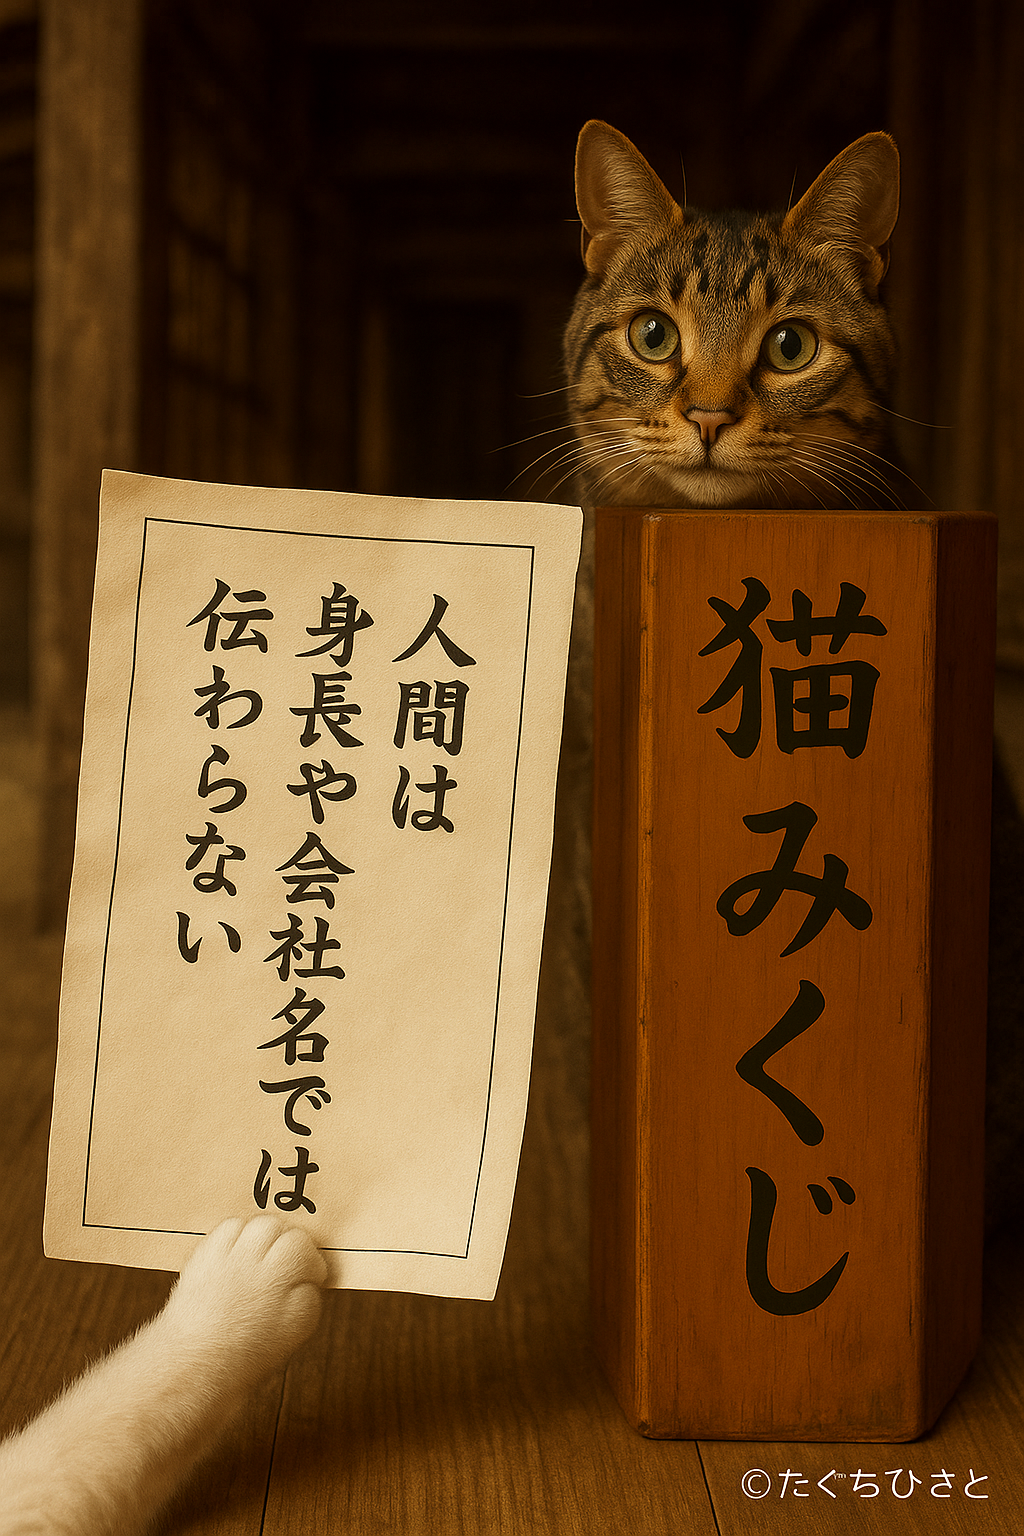 人間は
身長や会社名では
伝わらない
猫みくじ
©たぐちひさと